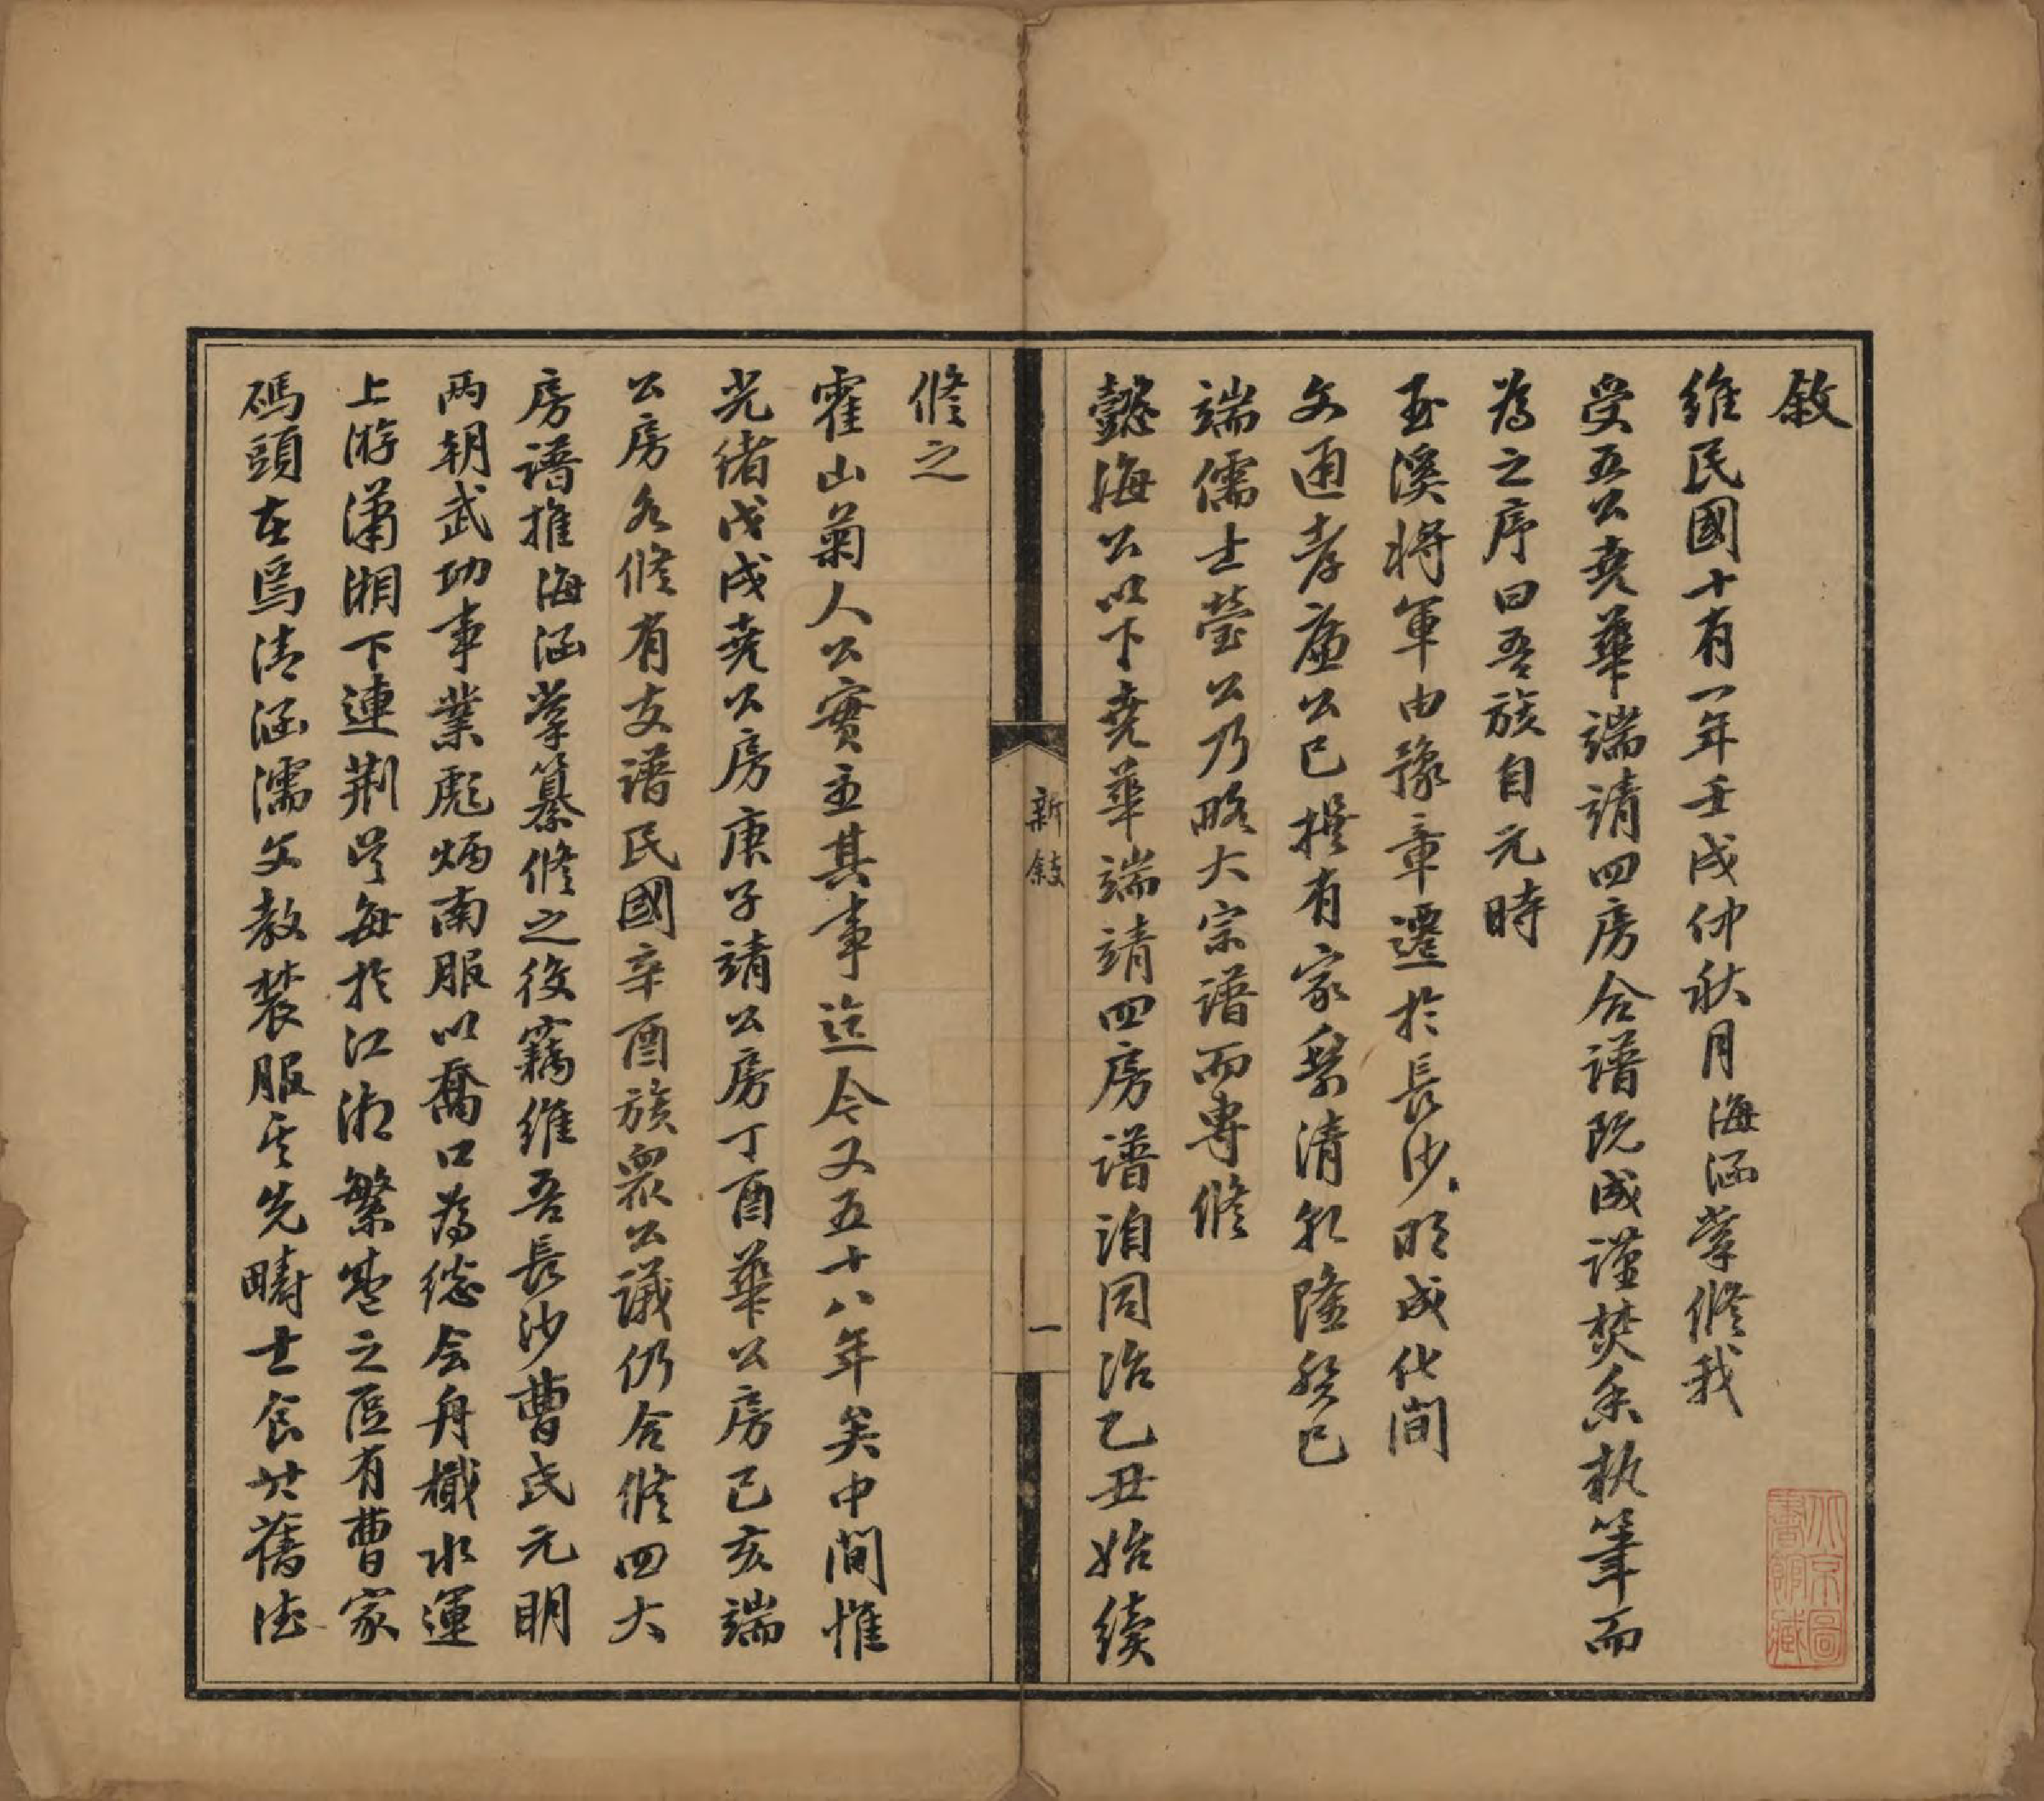 敘
維民國十有一年壬戌仲秋月海涵等修我
受五公堯華端請四房合譜既成謹焚香執筆而
為之序曰吾族自元時
玉溪將軍由豫章遷於長沙明成化間
文通孝廉公已撰有家乘清乾隆癸巳
端儒士瑩公乃略大宗譜而專修
懿海公以下堯華端靖四房譜洎同治乙丑始續
修之
霍山菊人公實主其事迄今又五十八年矣中間惟
光緒戊戌堯公房庚子靖公房丁酉華公房己亥端
公房各修有支譜民國辛酉族眾公議仍合修四大
房譜推海涵等纂修之後竊維吾長沙曹氏元明
兩朝武功事業彪炳南服以喬口為總会舟檝水運
上游瀟湘下連荆吳每於江湖繁盛之區有曹家
碼頭在焉清涵濡文教裝服其先疇士食其舊德
新敘
一
北京圖
書館藏